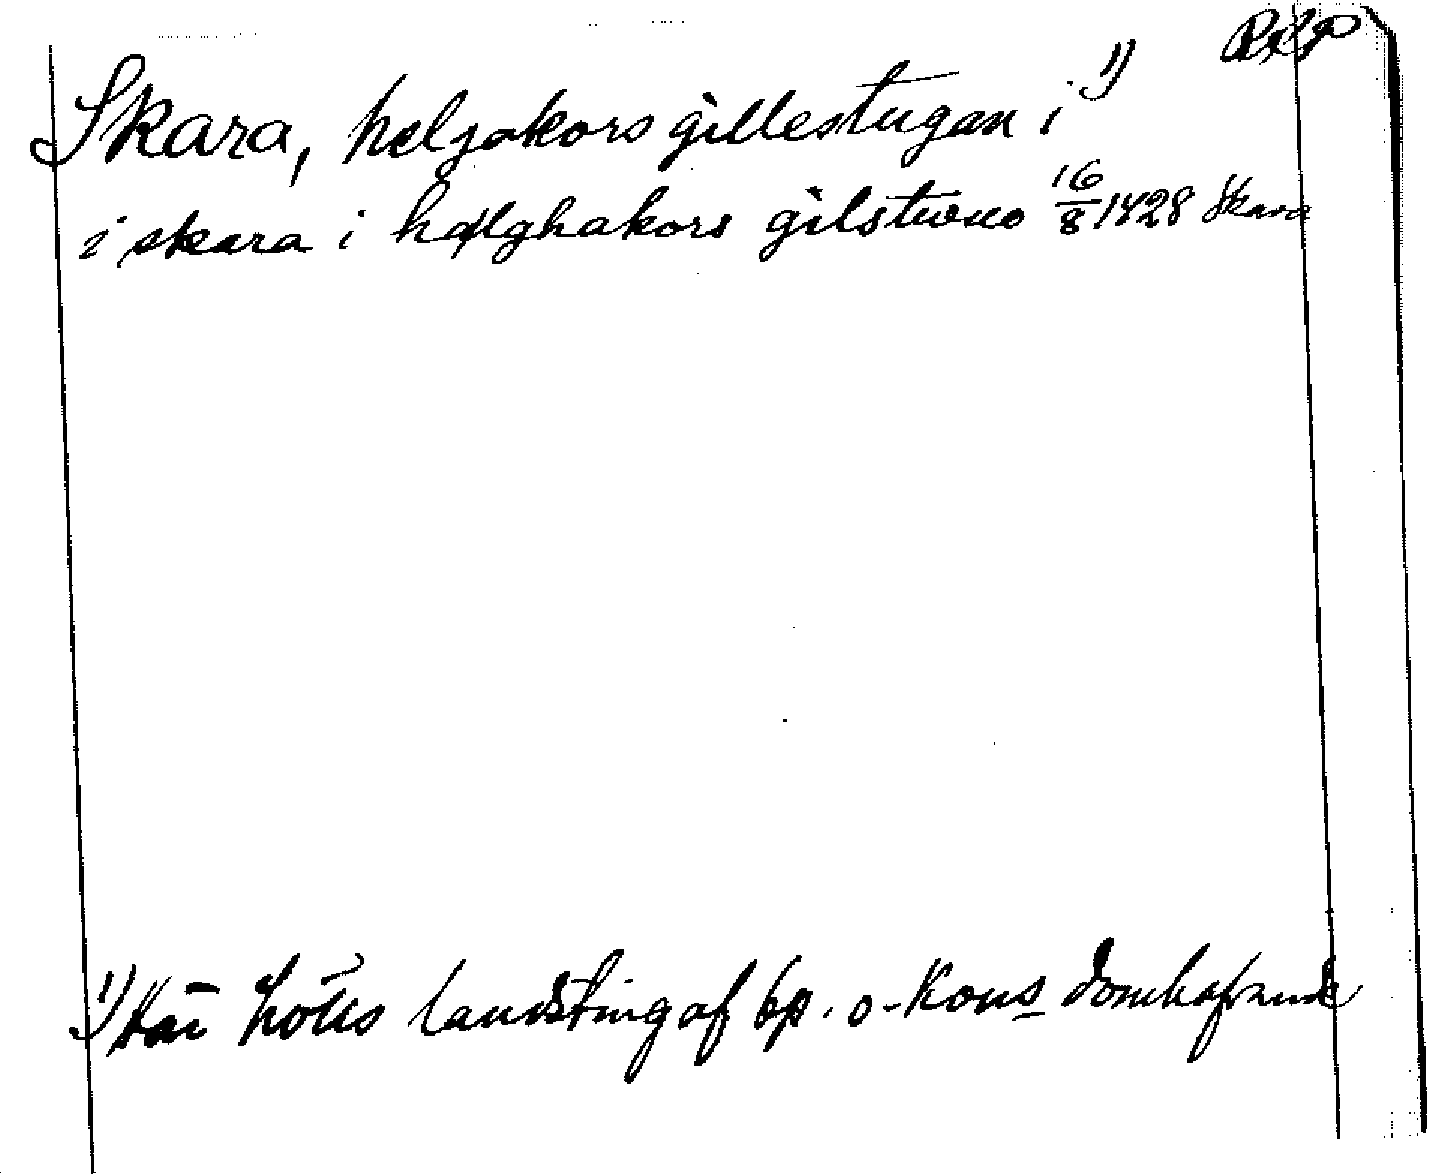 RAP
Skara, heljakors gillestugan i 1)
i skara i hælghakors gilstwuo 16/8 1428 Skara
1) här hölls landsting af bp. o. Kons domhafvande